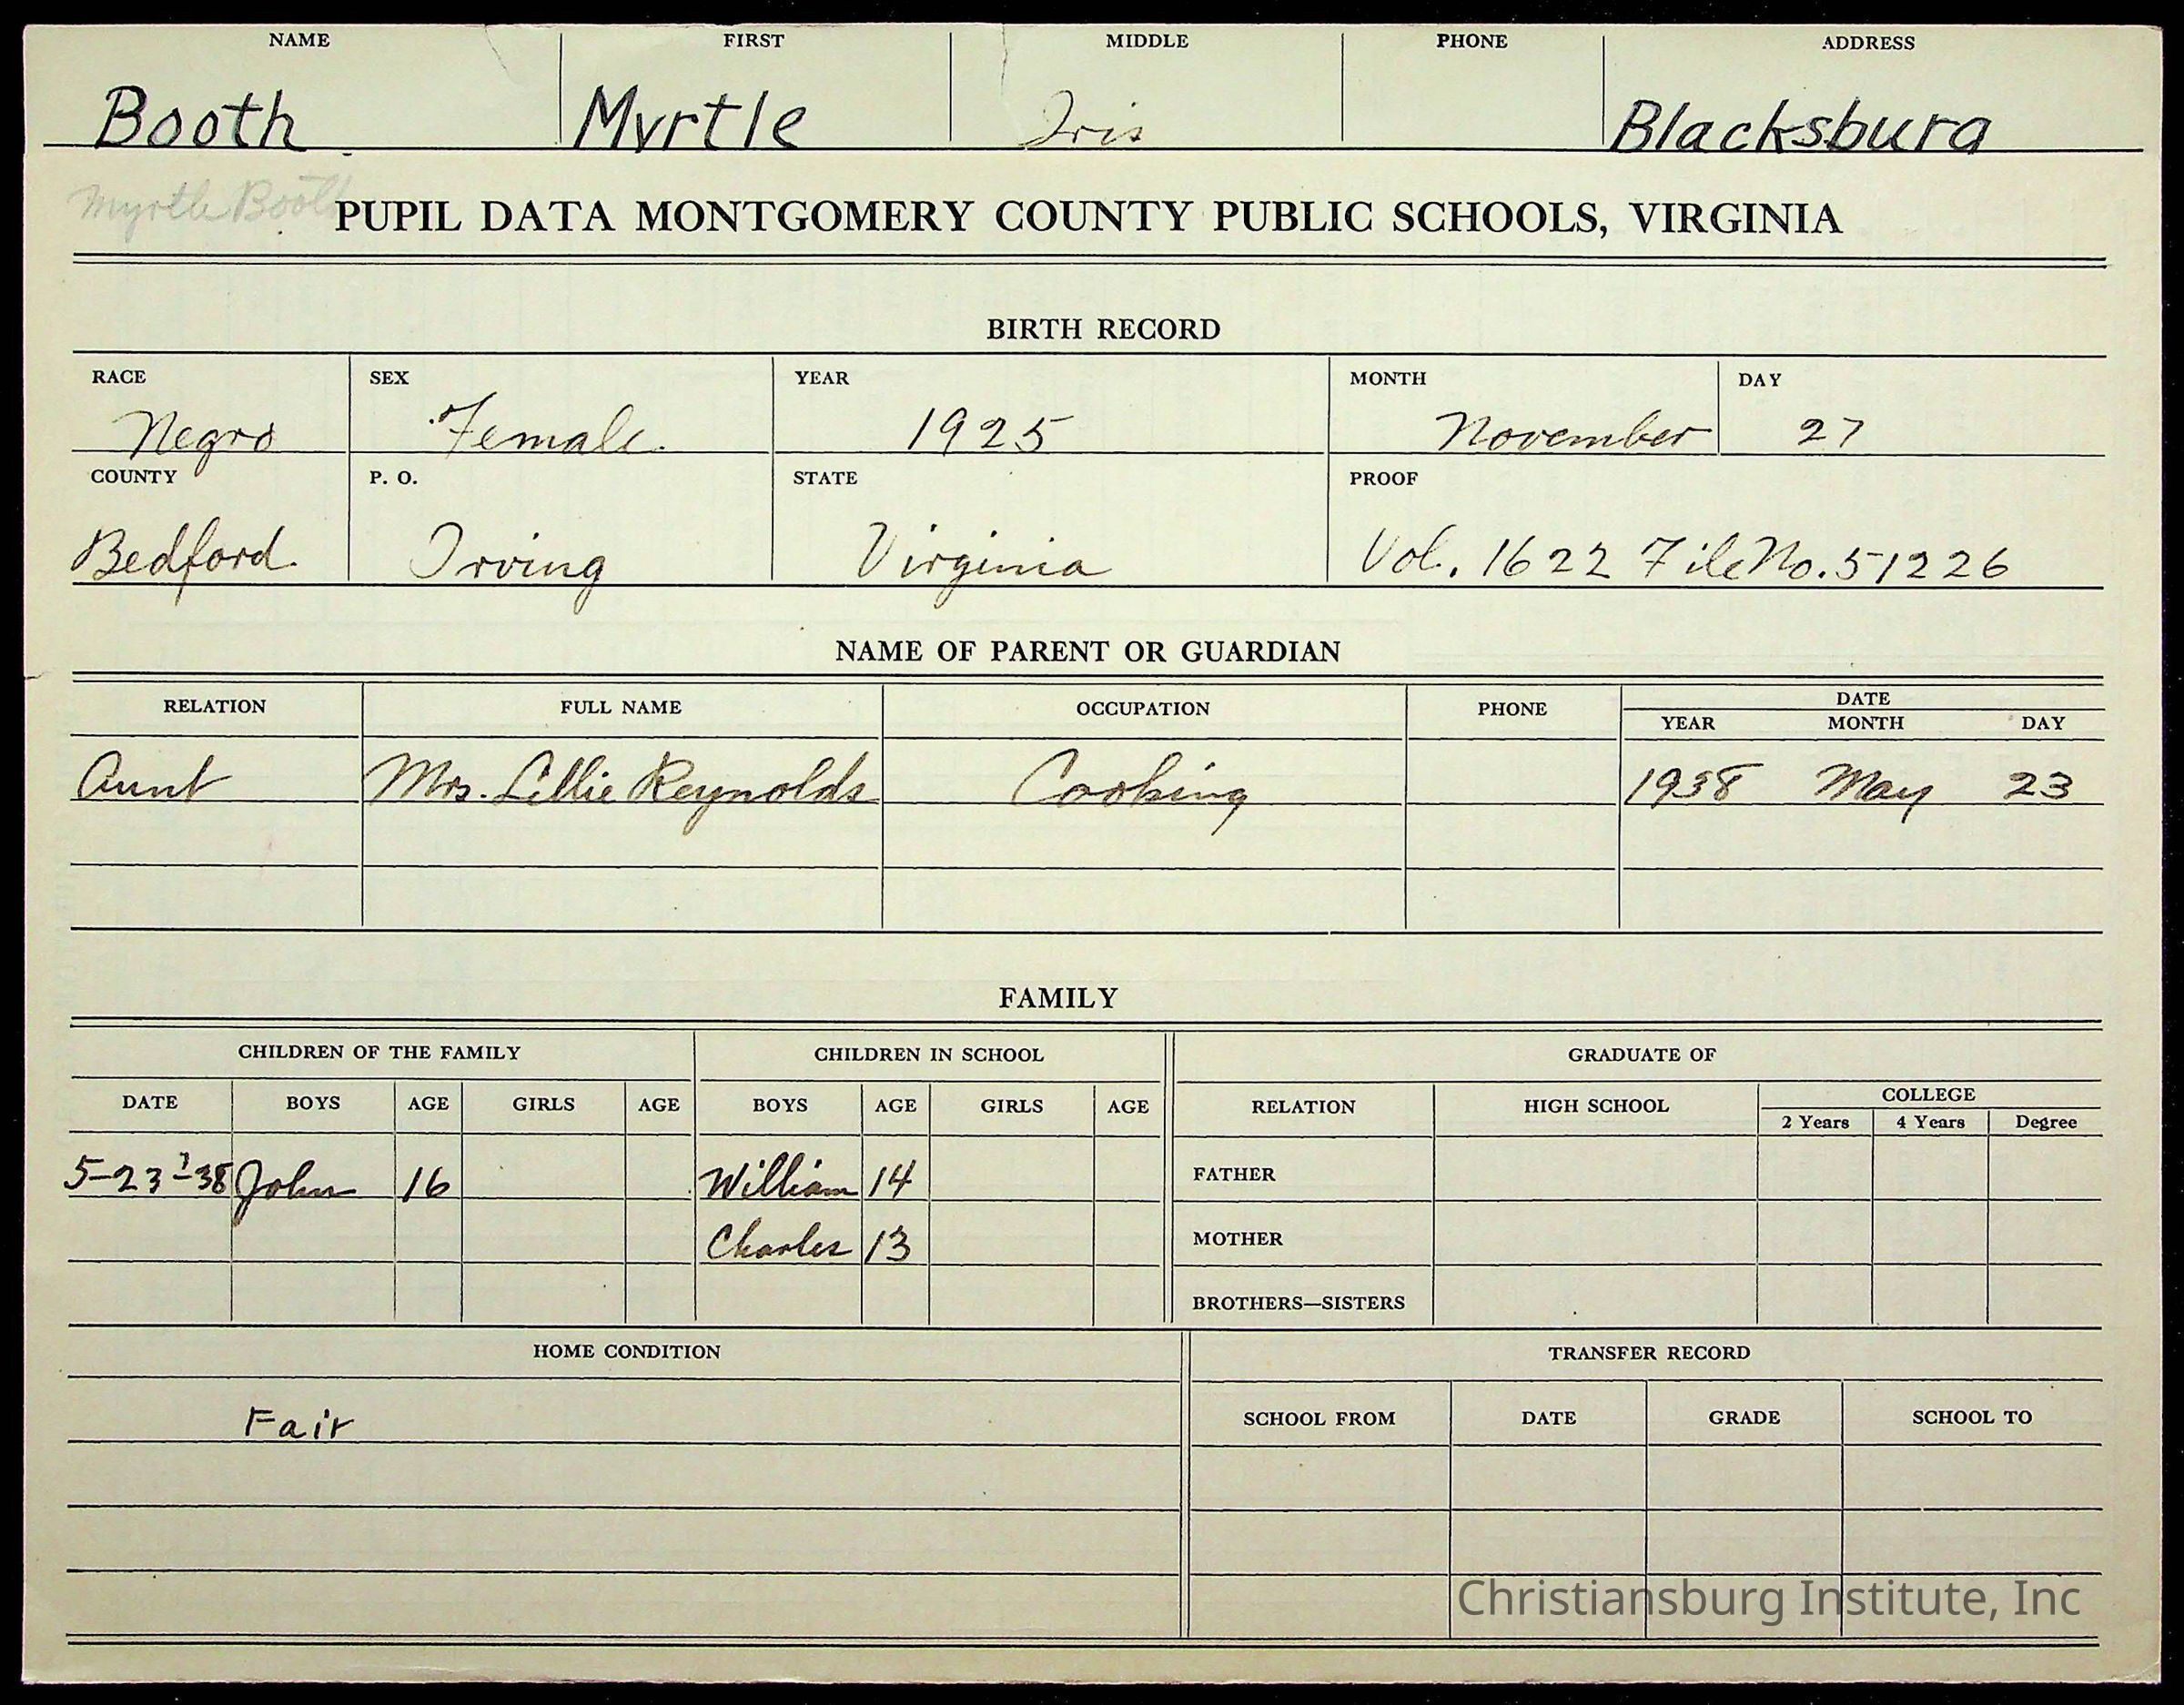 NAME FIRST MIDDLE PHONE ADDRESS
Booth Myrtle Iris Blacksburg
Myrtle Booth
PUPIL DATA MONTGOMERY COUNTY PUBLIC SCHOOLS, VIRGINIA
BIRTH RECORD
RACE SEX YEAR MONTH DAY
Negro Female 1925 November 27
COUNTY P. O. STATE PROOF
Bedford Irving Virginia Vol. 1622 File No. 51226
NAME OF PARENT OR GUARDIAN
RELATION FULL NAME OCCUPATION PHONE DATE
YEAR MONTH DAY
Aunt Mrs. Lillie Reynolds Cooking 1938 May 23
FAMILY
CHILDREN OF THE FAMILY CHILDREN IN SCHOOL GRADUATE OF
DATE BOYS AGE GIRLS AGE BOYS AGE GIRLS AGE RELATION HIGH SCHOOL COLLEGE
2 Years 4 Years Degree
5-23-'38 John 16 William 14 FATHER
Charles 13 MOTHER
BROTHERS—SISTERS
HOME CONDITION TRANSFER RECORD
Fair SCHOOL FROM DATE GRADE SCHOOL TO
Christiansburg Institute, Inc